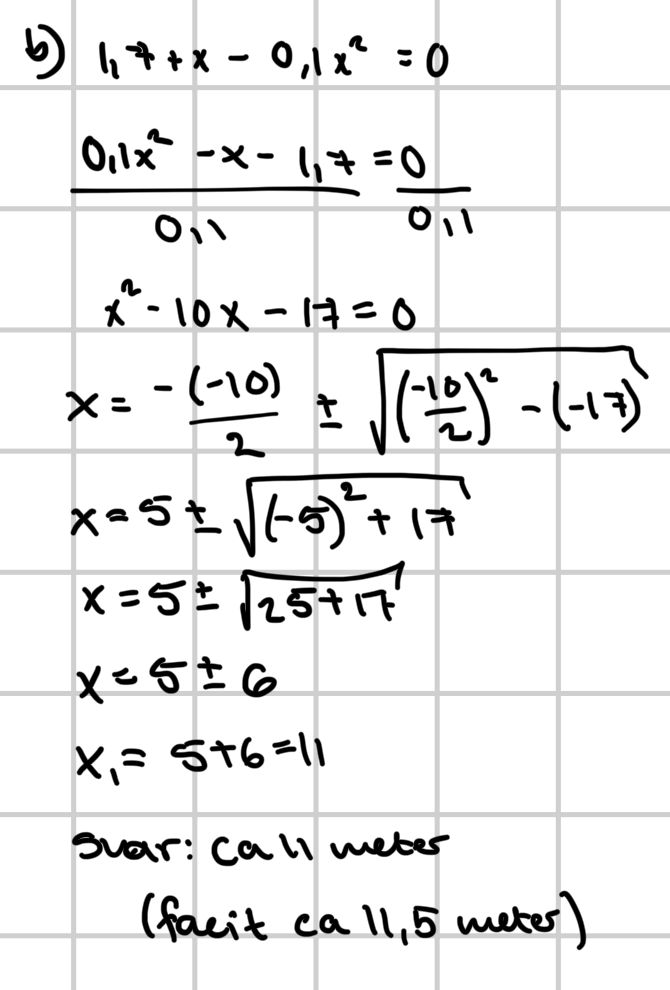 b) 1,7 + x - 0,1x² = 0
0,1x² - x - 1,7 = 0
0,1 0,1
x² - 10x - 17 = 0
x = -(-10)/2 ± √((-10/2)² - (-17))
x = 5 ± √((-5)² + 17)
x = 5 ± √(25+17)
x = 5 ± 6
x₁ = 5+6 = 11
svar: ca 11 meter
(facit ca 11,5 meter)